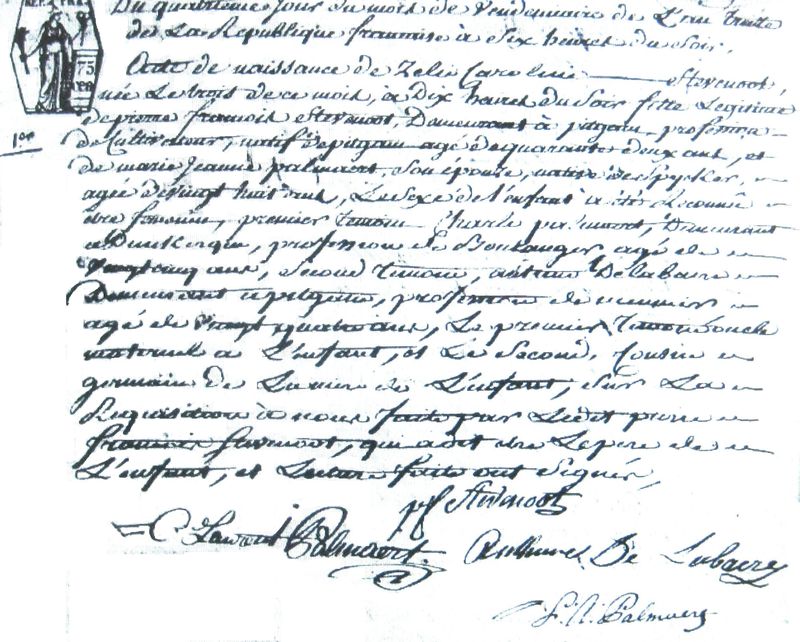 REP. FRA.
75
Du quatrieme jour du mois de Vendemiaire de L'an treize
de La Republique francaise a Six heures du Soir.
Acte de naissance de Zelie Caroline Stevenoot,
née Le trois de ce mois, à Dix heures du Soir fille Legitime
de pierre francois Stevenoot, Demeurant à pitgam, profession
de Cultivateur, natif de pitgam agé de quarante deux ans, et
de marie Jeanne palmaert, Son épouse, native de Spycker,
agée de vingt huit ans, Le Sexe de l'enfant à été reconnû
être feminin, premier temoin Charle palmaert, Demeurant
a Dunkerque, profession de Boulanger agé de
vingt cinq ans, Second temoin, Delabaere
Demeurant a pitgam, profession de meunier
agé de vingt quatre ans, Le premier temoin oncle
maternel a L'enfant, et Le Second, Cousin
germain de La mere de L'enfant, Sur La
Requisition à nous faite par Ledit pierre
francois Stevenoot, qui a dit être Le pere de
L'enfant, et Lecture faite ont Signés,
pf Stevenoot
C. Palmaert. De Labaere
Palmaert